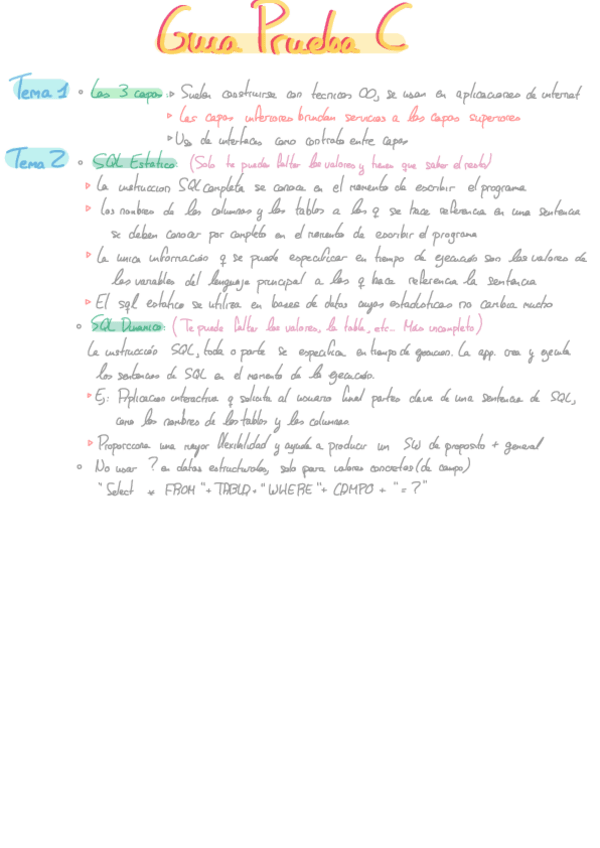 Guia Prueba C
Tema 1 Las 3 capas: Suelen construirse con tecnicas OO, se usan en aplicaciones de internet
Las capas inferiores brindan servicios a las capas superiores
Uso de interfaces como contrato entre capas
Tema 2 SQL Estatico: (Solo te pueden faltar los valores y tienes que saber el resto)
La instruccion SQL completa se conoce en el momento de escribir el programa
Los nombres de las columnas y las tablas a las q se hace referencia en una sentencia
se deben conocer por completo en el momento de escribir el programa
La unica informacion q se puede especificar en tiempo de ejecucion son los valores de
las variables del lenguaje principal a las q hace referencia la sentencia
El sql estatico se utiliza en bases de datos cuyas estadisticas no cambia mucho
SQL Dinamico: (Te puede faltar los valores, la tabla, etc... Más incompleto)
La instrucción SQL, toda o parte se especifica en tiempo de ejecucion. La app. crea y ejecuta
las sentencias de SQL en el momento de la ejecucion.
Ej: Aplicacion interactiva q solicita al usuario final partes clave de una sentencia de SQL,
como los nombres de las tablas y las columnas
Proporciona una mayor flexibilidad y ayuda a producir un SW de proposito + general
No usar ? en datos estructurales, solo para valores concretos (de campo)
"Select * FROM "+ TABLA + "WHERE "+ CAMPO + "= ?"